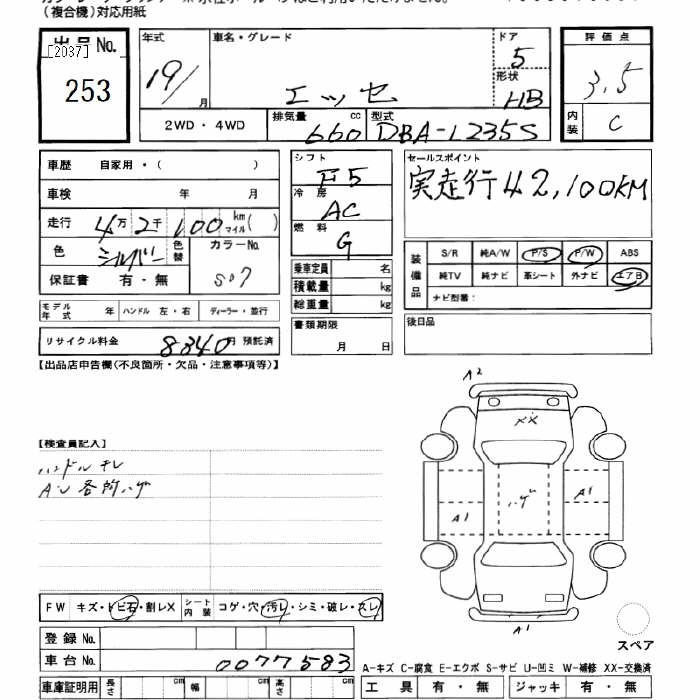 (複合機)対応用紙
出品 No.
[2037]
253
年式
19/
月
車名・グレード
エッセ
ドア
5
形状
HB
評価点
3.5
内装
C
2WD・4WD
排気量 660 cc
型式 DBA-L235S
車歴 自家用・( )
車検 年 月
走行 4万2千100 km マイル( )
色 シルバー 色替
カラーNo. S07
保証書 有・無
モデル年式 年 ハンドル 左・右 ディーラー・並行
リサイクル料金 8840円 預託済
シフト F5
冷房 AC
燃料 G
乗車定員 名
積載量 kg
総重量 kg
書類期限
月 日
セールスポイント
実走行42,100KM
装備品
S/R 純A/W P/S P/W ABS
純TV 純ナビ 革シート 外ナビ エアB
ナビ型番:
後日品
【出品店申告欄(不良箇所・欠品・注意事項等)】
【検査員記入】
ハンドルスレ
A・U各所ハゲ
A2
XX
ハゲ
A1
A1
A1
スペア
FW キズ・トビ石・割レX シート内装 コゲ・穴・汚レ・シミ・破レ・スレ
登録 No.
車台 No. 0077583
A-キズ C-腐食 E-エクボ S-サビ U-凹ミ W-補修 XX-交換済
車庫証明用 長さ cm 幅 cm 高さ cm
工具 有・無 ジャッキ 有・無